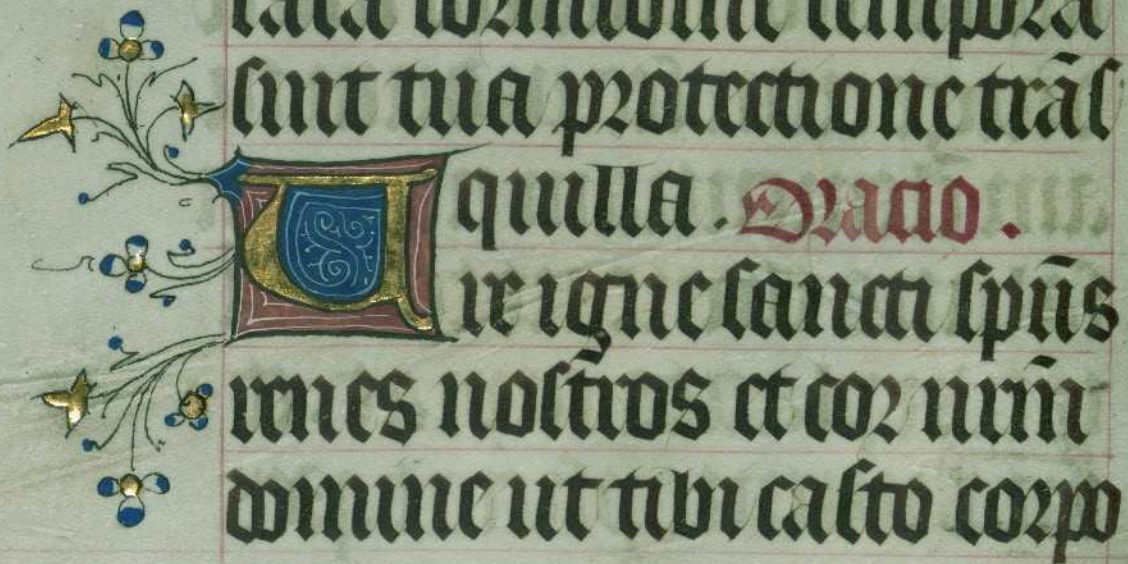 lata formidine tempora
ſint tua protectione trãſ
quilla. Oracio.
Ure igne ſancti ſpũs
renes noſtros et cor nrm̃
domine ut tibi caſto corpo